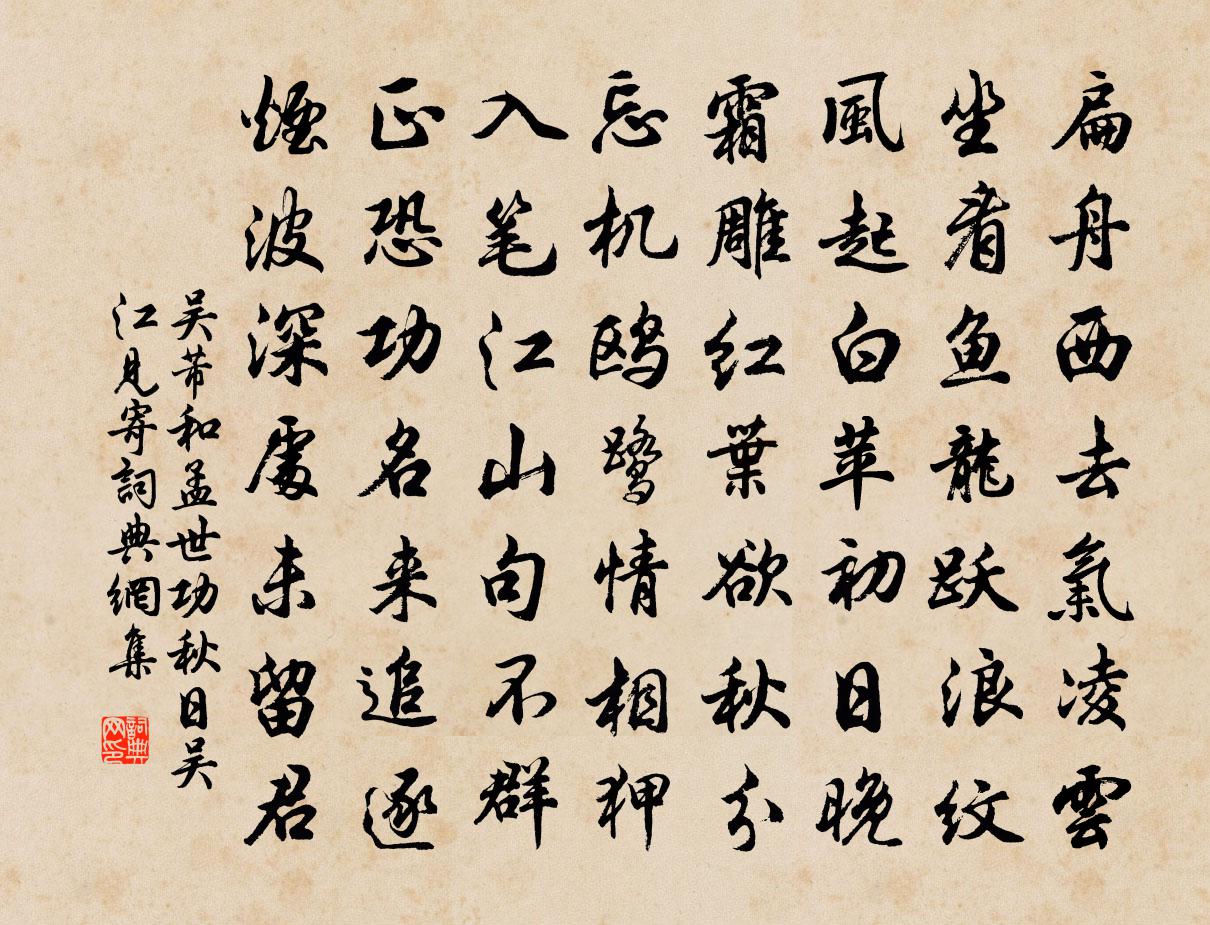 扁舟西去氣凌雲
坐看鱼龍跃浪紋
風起白苹初日晚
霜雕紅葉欲秋分
忘机鸥鹭情相狎
入笔江山句不群
正恐功名来追逐
煙波深處未留君
吴芾和孟世功秋日吴
江見寄詞典網集
詞典网印